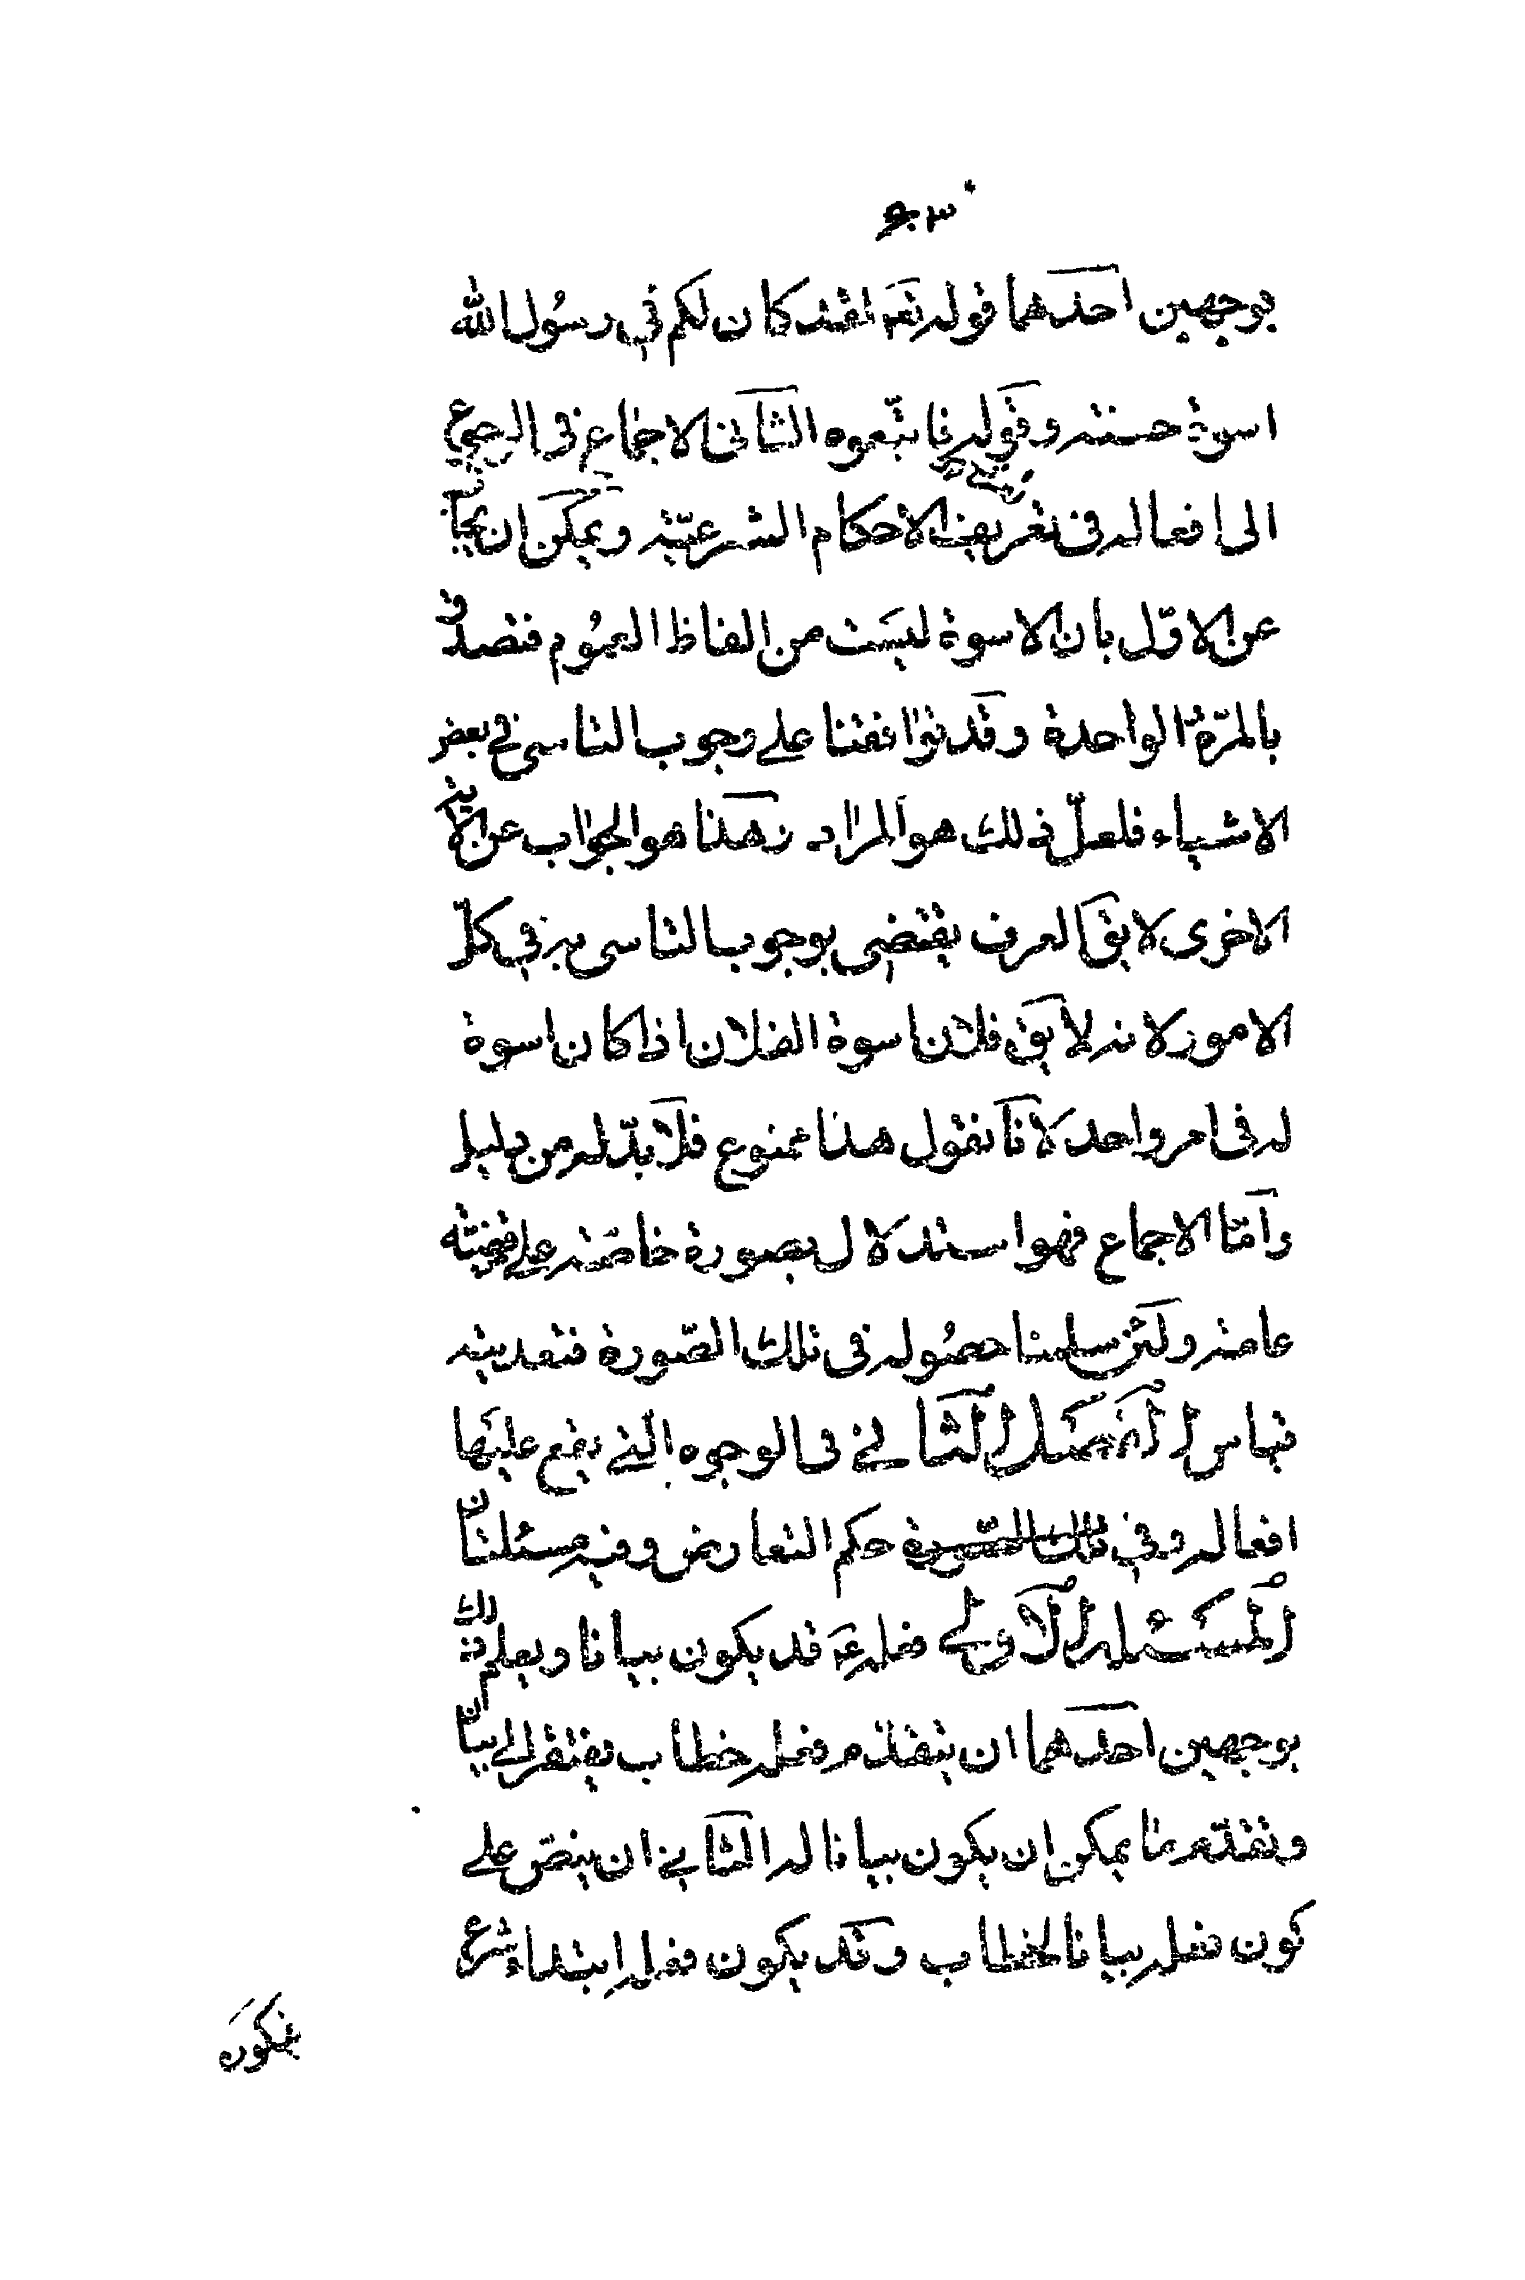 بوجهين احدهما قوله تعه لقد كان لكم في رسول الله
اسوة حسنة وقوله فاتبعوه الثانى الاجماع فى الرجوع
الى افعاله فى تعريف الاحكام الشرعيّة ويمكن ان يجاب
عن الاوّل بان الاسوة ليست من الفاظ العموم فتصدق
بالمرّة الواحدة وقد توافقنا على وجوب التاسى في بعض
الاشياء فلعلّ ذلك هو المراد وهذا هو الجواب عن الاية
الاخرى لا يق العرف يقتضى بوجوب التاسى به في كلّ
الامور لانه لا يق فلان اسوة الفلان اذا كان اسوة
له فى امر واحد لانا نقول هذا ممنوع فلا بدّ له من دليل
وامّا الاجماع فهو استدلال بصورة خاصّة على قضيّة
عامة ولئن سلمنا حصوله فى تلك الصّورة فتعديته
قياس الفصل الثاني فى الوجوه الّتي يقع عليها
افعاله وفي تلك الصّورة حكم التعارض وفيه مسئلتان
المسئلة الاولى فعله عه قد يكون بيانا ويعلم ذلك
بوجهين احدهما ان يتقدّم فعله خطاب يفتقر الى بيان
وتقدّم ما يمكن ان يكون بيانا له الثاني ان ينصّ على
كون فعله بيانا لخطاب وقد يكون فعله ابتداء شرع